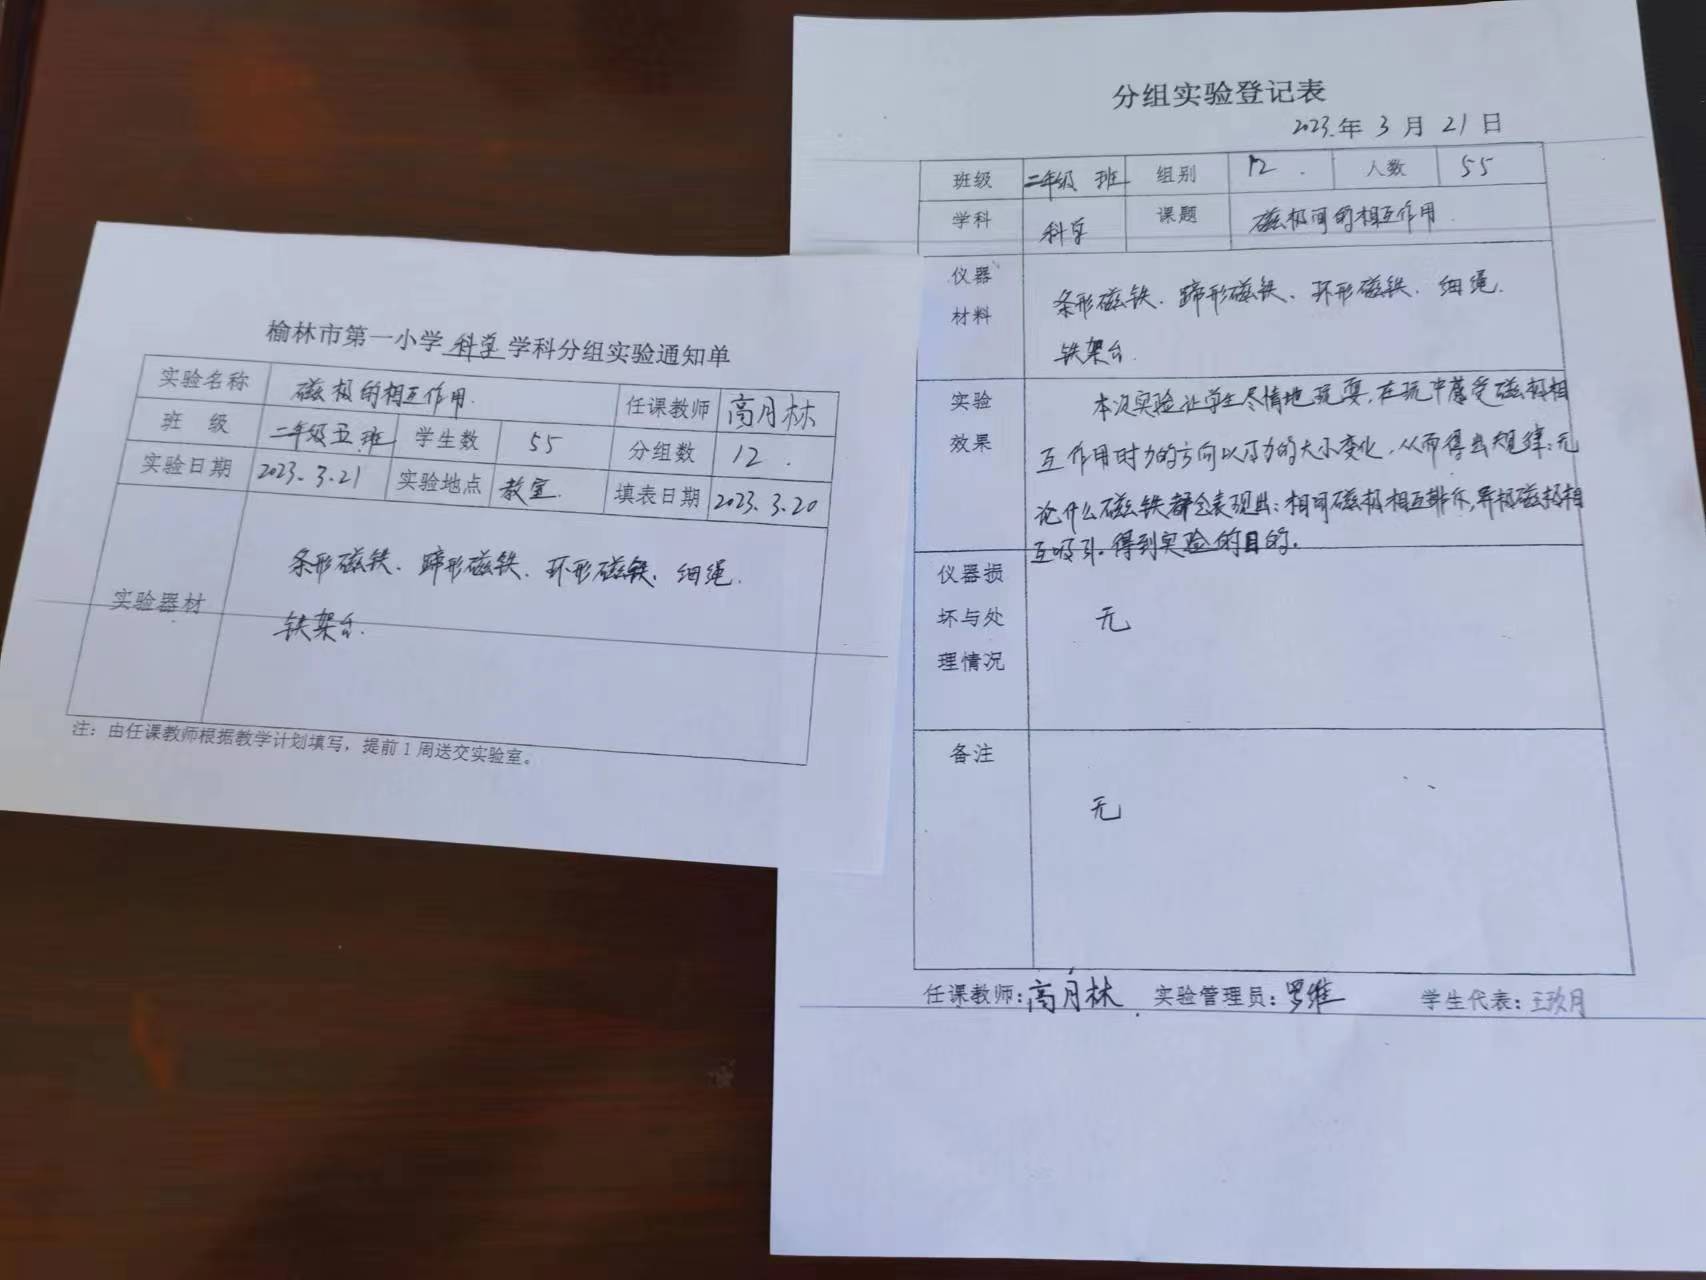 榆林市第一小学 科学 学科分组实验通知单
实验名称 磁极的相互作用. 任课教师 高月林
班 级 二年级五班 学生数 55 分组数 12.
实验日期 2023.3.21 实验地点 教室. 填表日期 2023.3.20
实验器材
条形磁铁、蹄形磁铁、环形磁铁、细绳.
铁架台.
注：由任课教师根据教学计划填写，提前1周送交实验室。
分组实验登记表
2023.年 3 月 21 日
班级 二年级 班 组别 12. 人数 55
学科 科学 课题 磁极间的相互作用.
仪器
材料
条形磁铁、蹄形磁铁、环形磁铁、细绳.
铁架台.
实验
效果
本次实验让学生尽情地玩耍,在玩中感受磁极相
互作用时力的方向以及力的大小变化,从而得出规律:无
论什么磁铁都会表现出:相同磁极相互排斥,异极磁极相
互吸引。得到实验的目的.
仪器损
坏与处
理情况
无
备注
无
任课教师:高月林 实验管理员:罗维 学生代表:王玖月